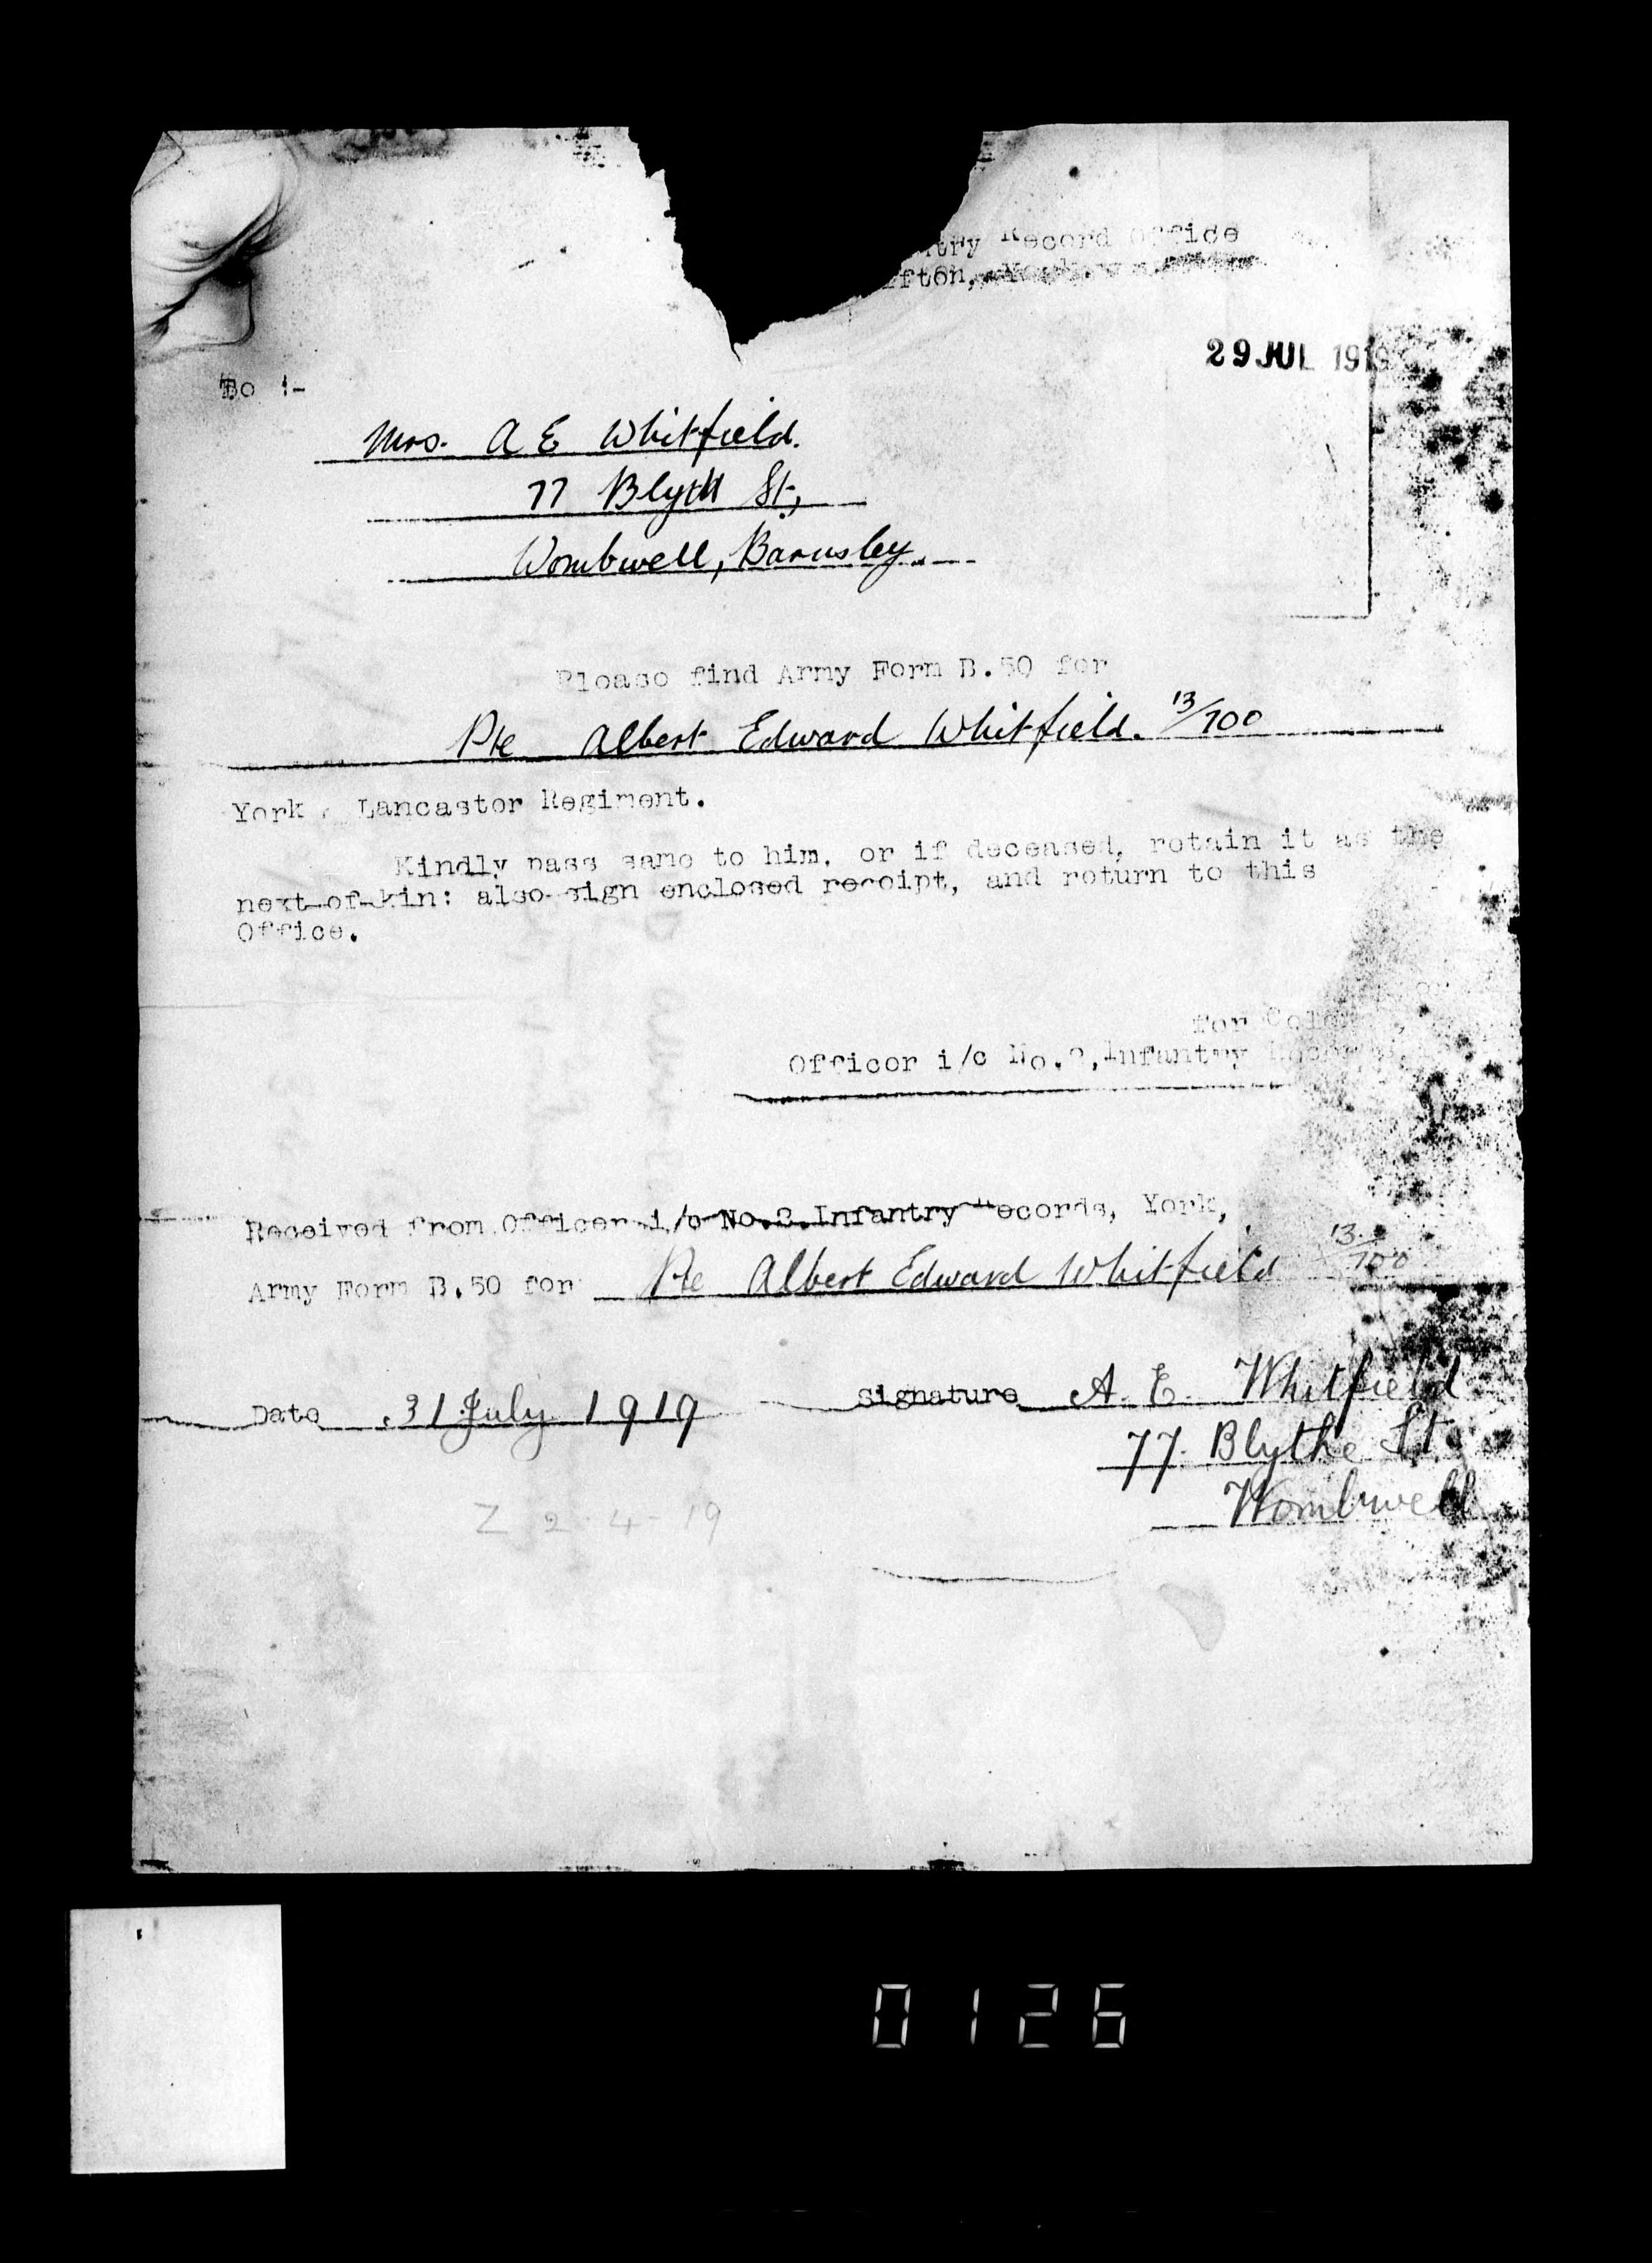 Record Office
29 JUL 1919
To :-
Mrs. A E Whitfield.
77 Blyth St,
Wombwell, Barnsley.
Please find Army Form B.50 for
Pte Albert Edward Whitfield. 13/700
York Lancaster Regiment.
Kindly pass same to him, or if deceased, retain it as the
next-of-kin: also sign enclosed receipt, and return to this
Office.
for Colonel,
Officer i/c No.2, Infantry Records,
Received from Officer i/c No.2. Infantry Records, York,
13
Army Form B.50 for Pte Albert Edward Whitfield 700
Date 31 July 1919 Signature A. E. Whitfield
77. Blythe St
Wombwell
Z 2-4-19
0126